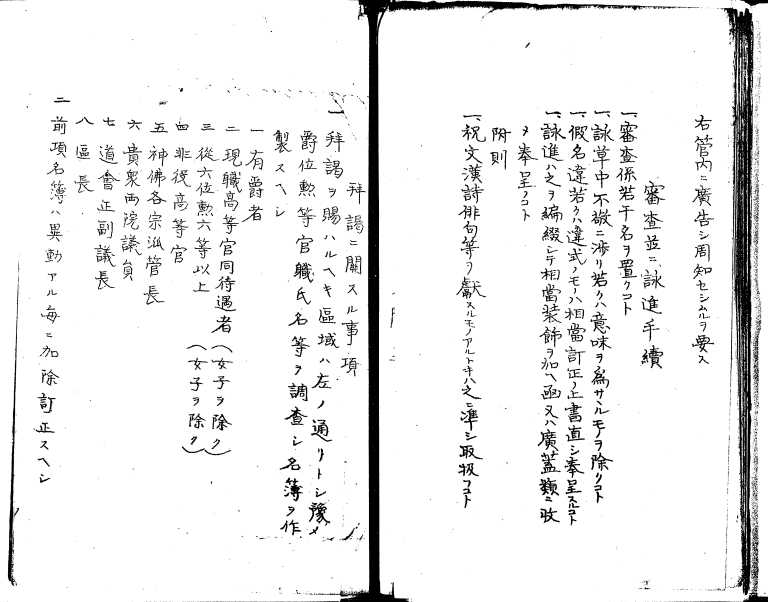 右管内ニ廣告シ周知セシムルヲ要ス
審査並ニ詠進手續
一、審査係若干名ヲ置クコト
一、詠草中不敬ニ渉リ若クハ意味ヲ為サヽルモノヲ除クコト
一、假名違若クハ違式ノモノハ相當訂正ノ上書直シ奉呈スルコト
一、詠進ハ之ヲ編綴シテ相當装飾ヲ加ヘ函又ハ廣蓋類ニ收
ヲ奉呈クコト
附則
一、祝文漢詩俳句等ヲ獻スルモノアルトキハ之ニ準シ取扱フコト
拜謁ニ關スル事項
一 拜謁ヲ賜ハルヘキ區域ハ左ノ通リトシ豫メ
爵位勲等官職氏名等ヲ調査シ名簿ヲ作
製スヘシ
一 有爵者
二 現職高等官同待遇者（女子ヲ除ク）
三 從六位勲六等以上（女子ヲ除ク）
四 非役高等官
五 神佛各宗派管長
六 貴衆両院議員
七 道會正副議長
八 區長
二 前項名簿ハ異動アル毎ニ加除訂正スヘシ